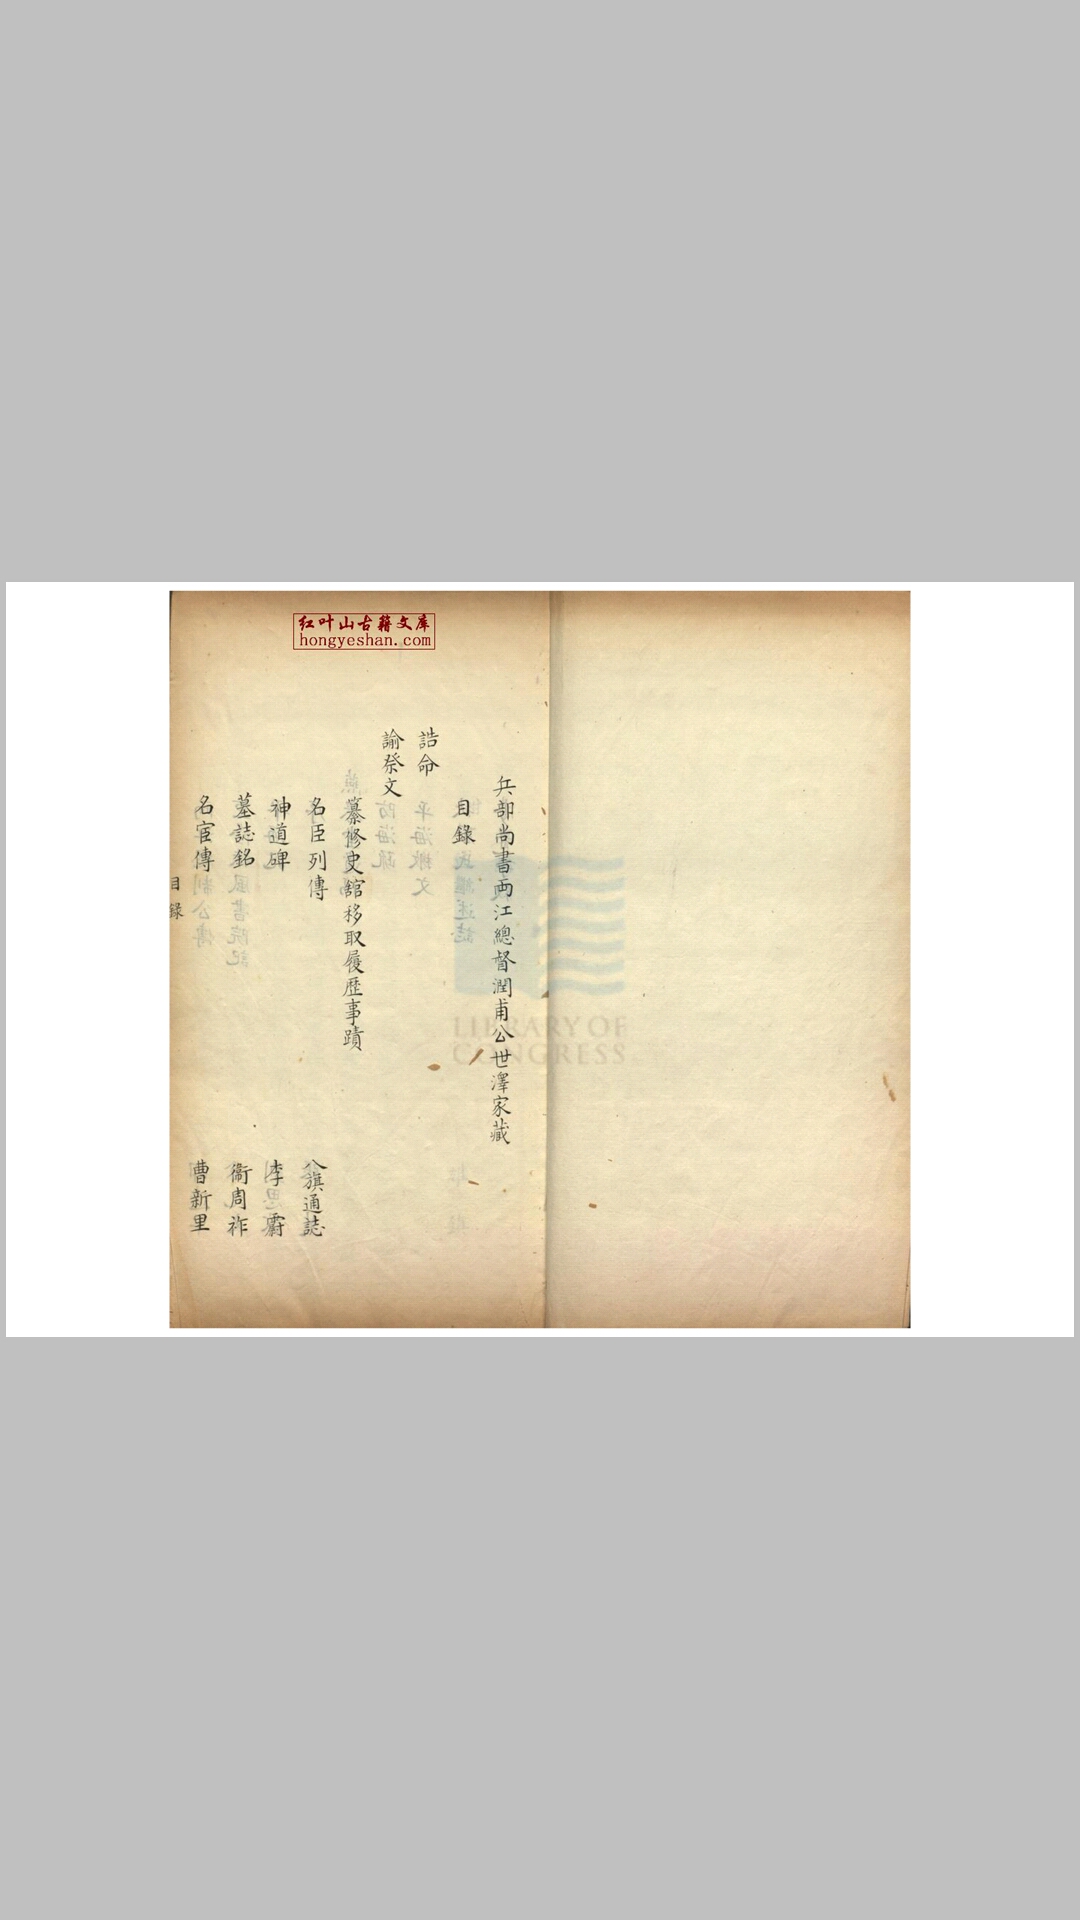 红叶山古籍文库
hongyeshan.com
兵部尚書兩江總督潤甫公世澤家藏
目錄
誥命
諭祭文
纂修史舘移取履歷事蹟
名臣列傳 八旗通誌
神道碑 李霨
墓誌銘 衞周祚
名宦傳 曹新里
目錄
LIBRARY OF
CONGRESS